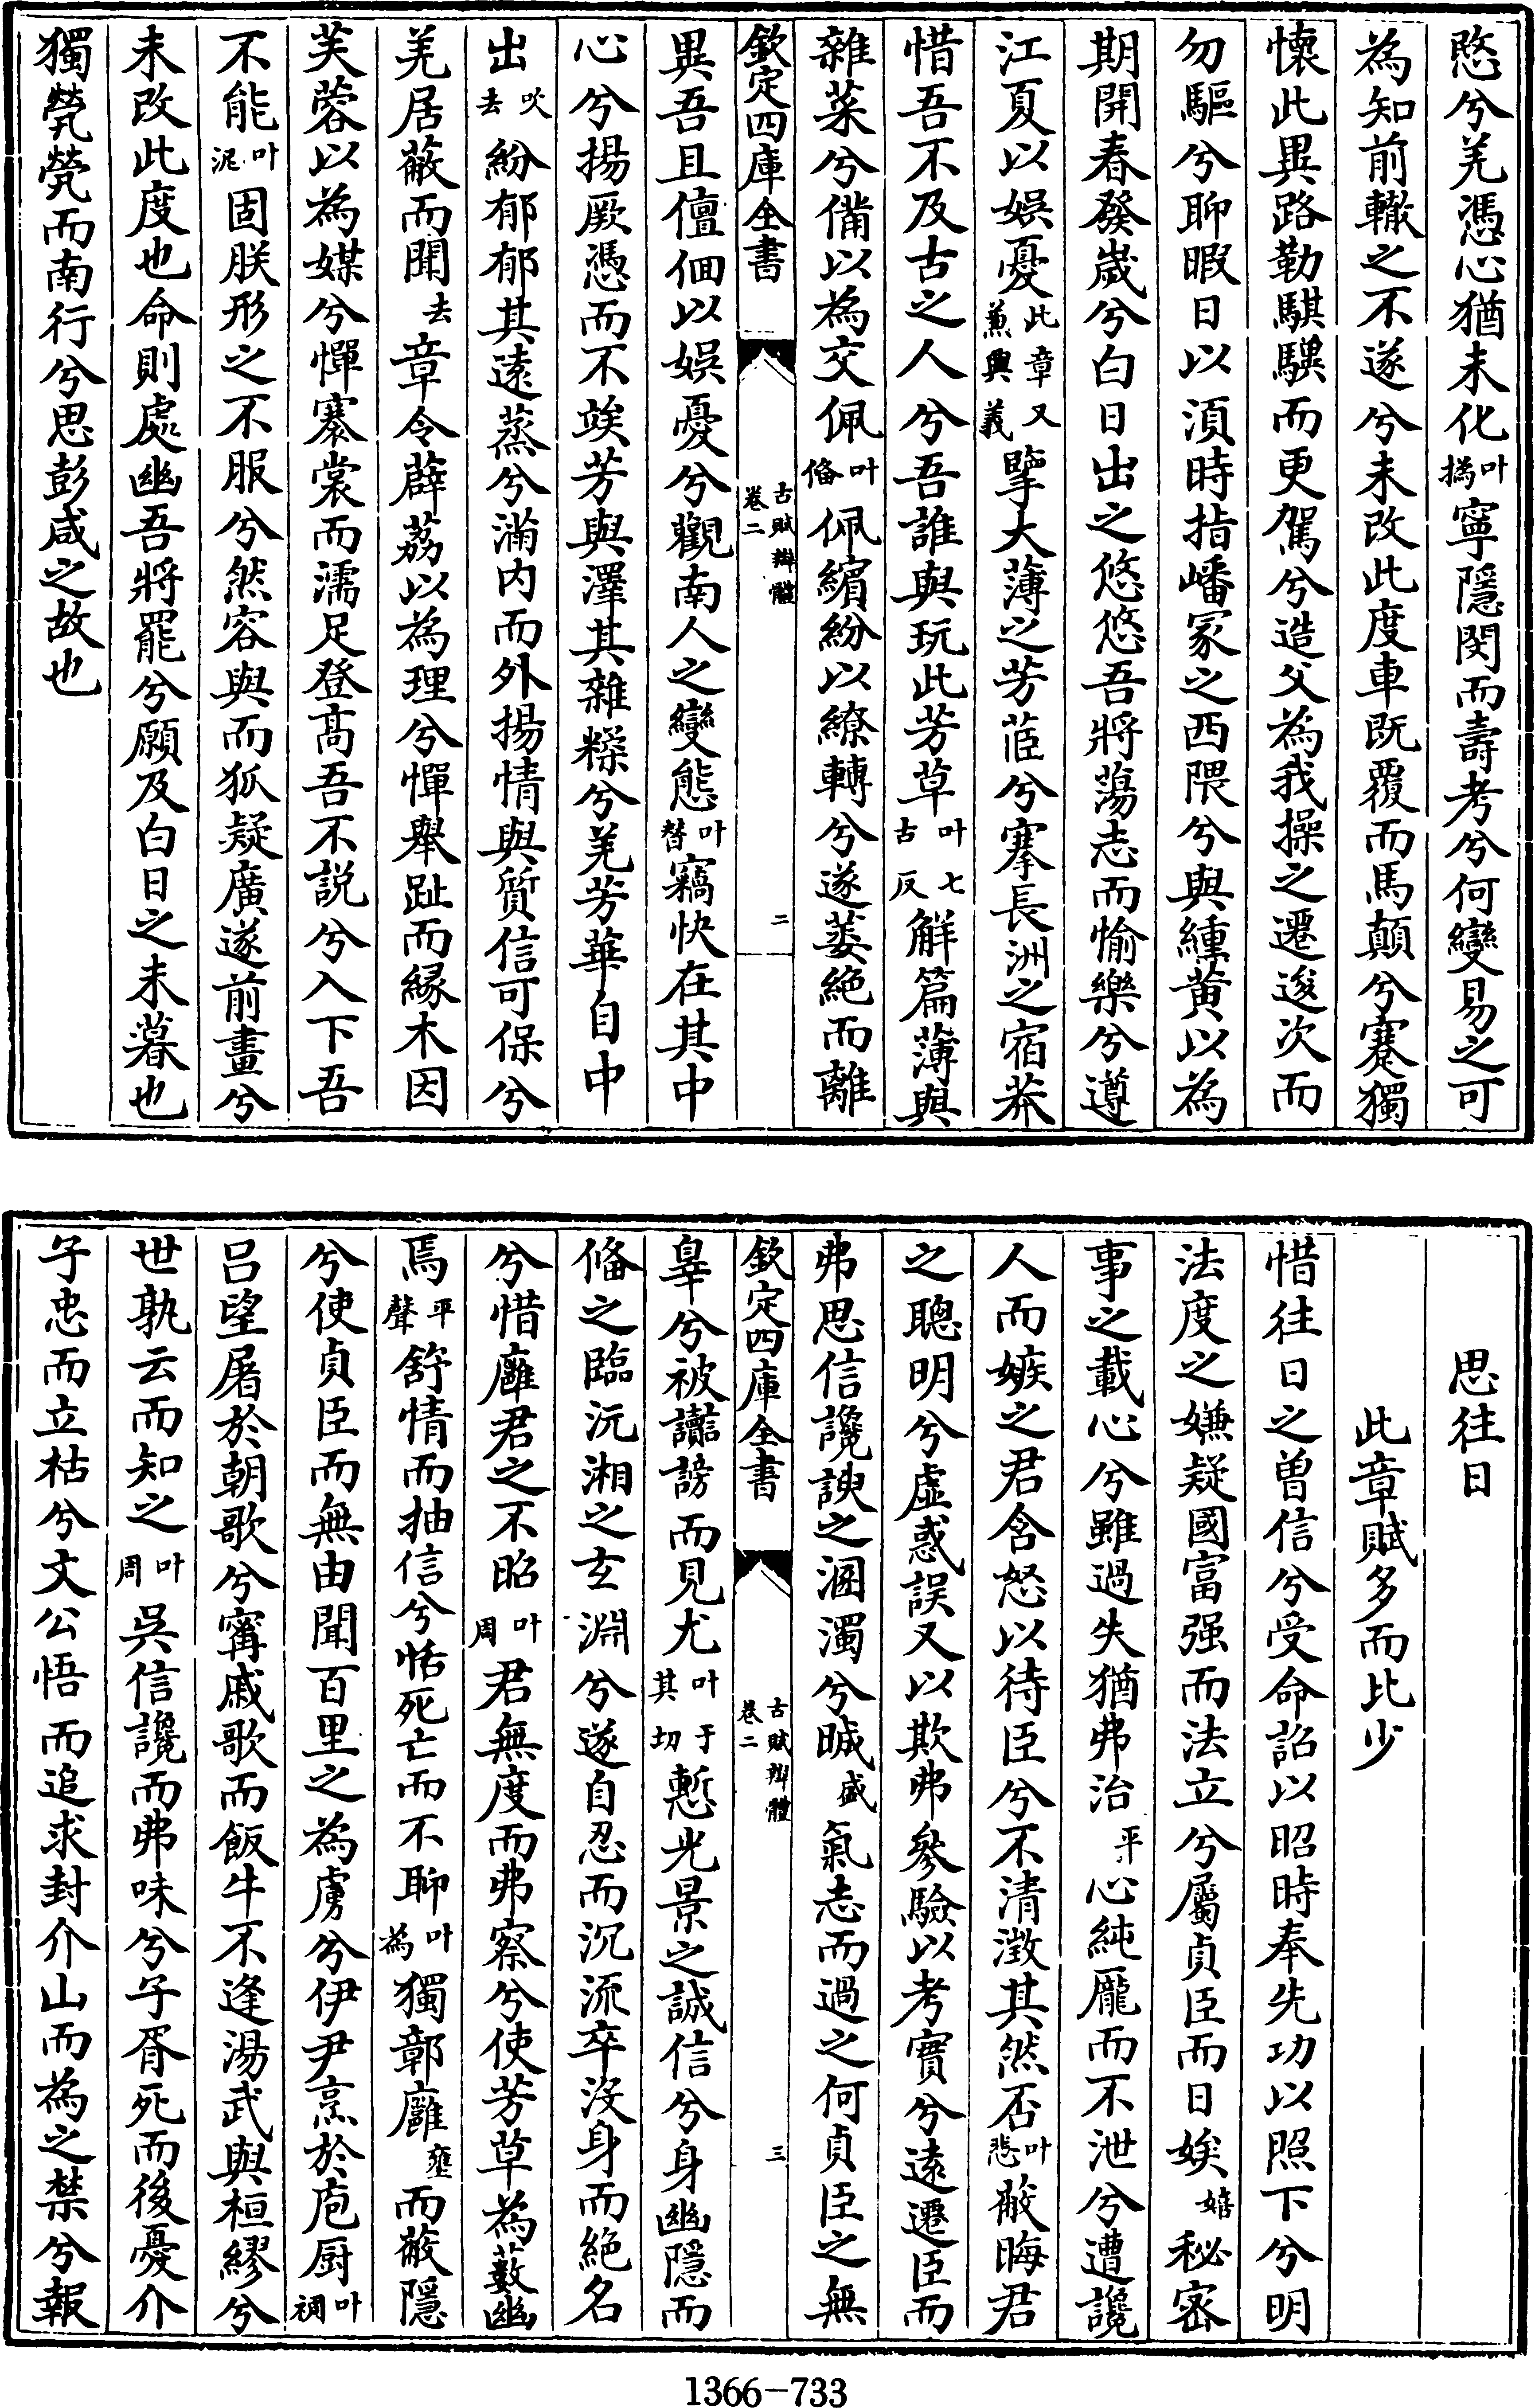 愍兮羌憑心猶未化叶撝寜隱閔而壽考兮何變易之可
為知前轍之不遂兮未改此度車既覆而馬顛兮蹇獨
懷此異路勒騏驥而更駕兮造父為我操之遷逡次而
勿驅兮聊暇日以湏時指嶓冡之西隈兮與纁黄以為
期開春發嵗兮白日出之悠悠吾將蕩志而愉樂兮遵
江夏以娯憂此章又兼興義擥大薄之芳茝兮搴長洲之宿莽
惜吾不及古之人兮吾誰與玩此芳草叶七古反解篇薄與
雜菜兮備以為交佩叶俻佩繽紛以繚轉兮遂萎絶而離
欽定四庫全書 古賦辯體 卷二 二
異吾且儃佪以娯憂兮觀南人之變態叶替竊快在其中
心兮揚厥憑而不竢芳與澤其雜糅兮羌芳華自中
出吹去紛郁郁其逺蒸兮滿内而外揚情與質信可保兮
羌居蔽而聞去章令薜荔以為理兮憚舉趾而縁木因
芙蓉以為媒兮憚褰裳而濡足登髙吾不説兮入下吾
不能叶泥固朕形之不服兮然容與而狐疑廣遂前畫兮
未改此度也命則處幽吾將罷兮願及白日之未暮也
獨煢煢而南行兮思彭咸之故也
思往日
此章賦多而比少
惜往日之曽信兮受命詔以昭時奉先功以照下兮明
法度之嫌疑國富强而法立兮屬貞臣而日娭嬉秘密
事之載心兮雖過失猶弗治平心純厖而不泄兮遭讒
人而嫉之君含怒以待臣兮不清澂其然否叶悲蔽晦君
之聰明兮虚惑誤又以欺弗參驗以考實兮逺遷臣而
弗思信讒諛之溷濁兮晠盛氣志而過之何貞臣之無
欽定四庫全書 古賦辯體 卷二 三
辠兮被讟謗而見尤叶于其切慙光景之誠信兮身幽隱而
俻之臨沅湘之玄淵兮遂自忍而沉流卒没身而絶名
兮惜廱君之不昭叶周君無度而弗察兮使芳草為藪幽
焉平聲舒情而抽信兮恬死亡而不聊叶為獨鄣廱壅而蔽隱
兮使貞臣而無由聞百里之為虜兮伊尹烹於庖厨叶裯
吕望屠於朝歌兮甯戚歌而飯牛不逢湯武與桓繆兮
世孰云而知之叶周吳信讒而弗味兮子胥死而後憂介
子忠而立枯兮文公悟而追求封介山而為之禁兮報
1366-733